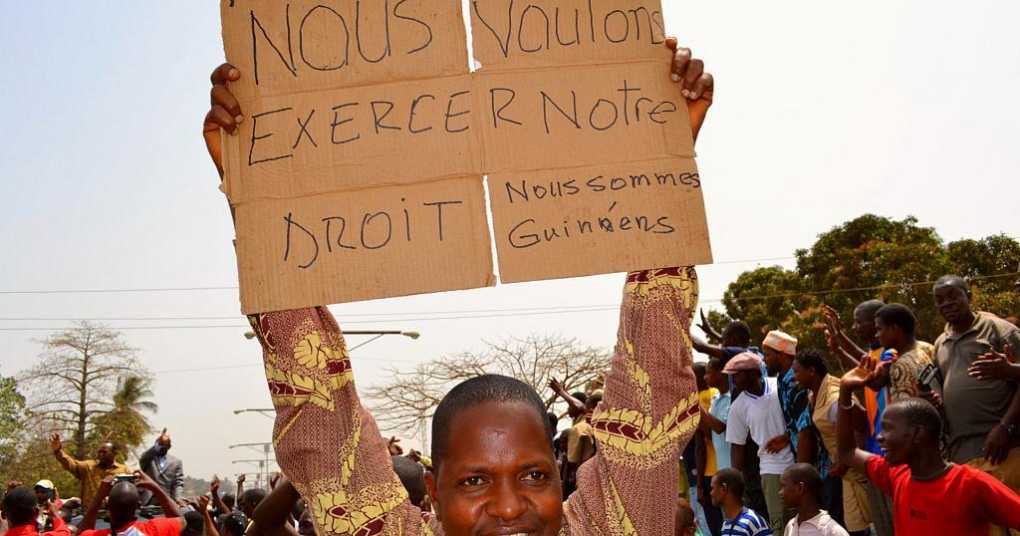 NOUS Voulons
EXERCER Notre
DROIT Nous sommes
Guinéens